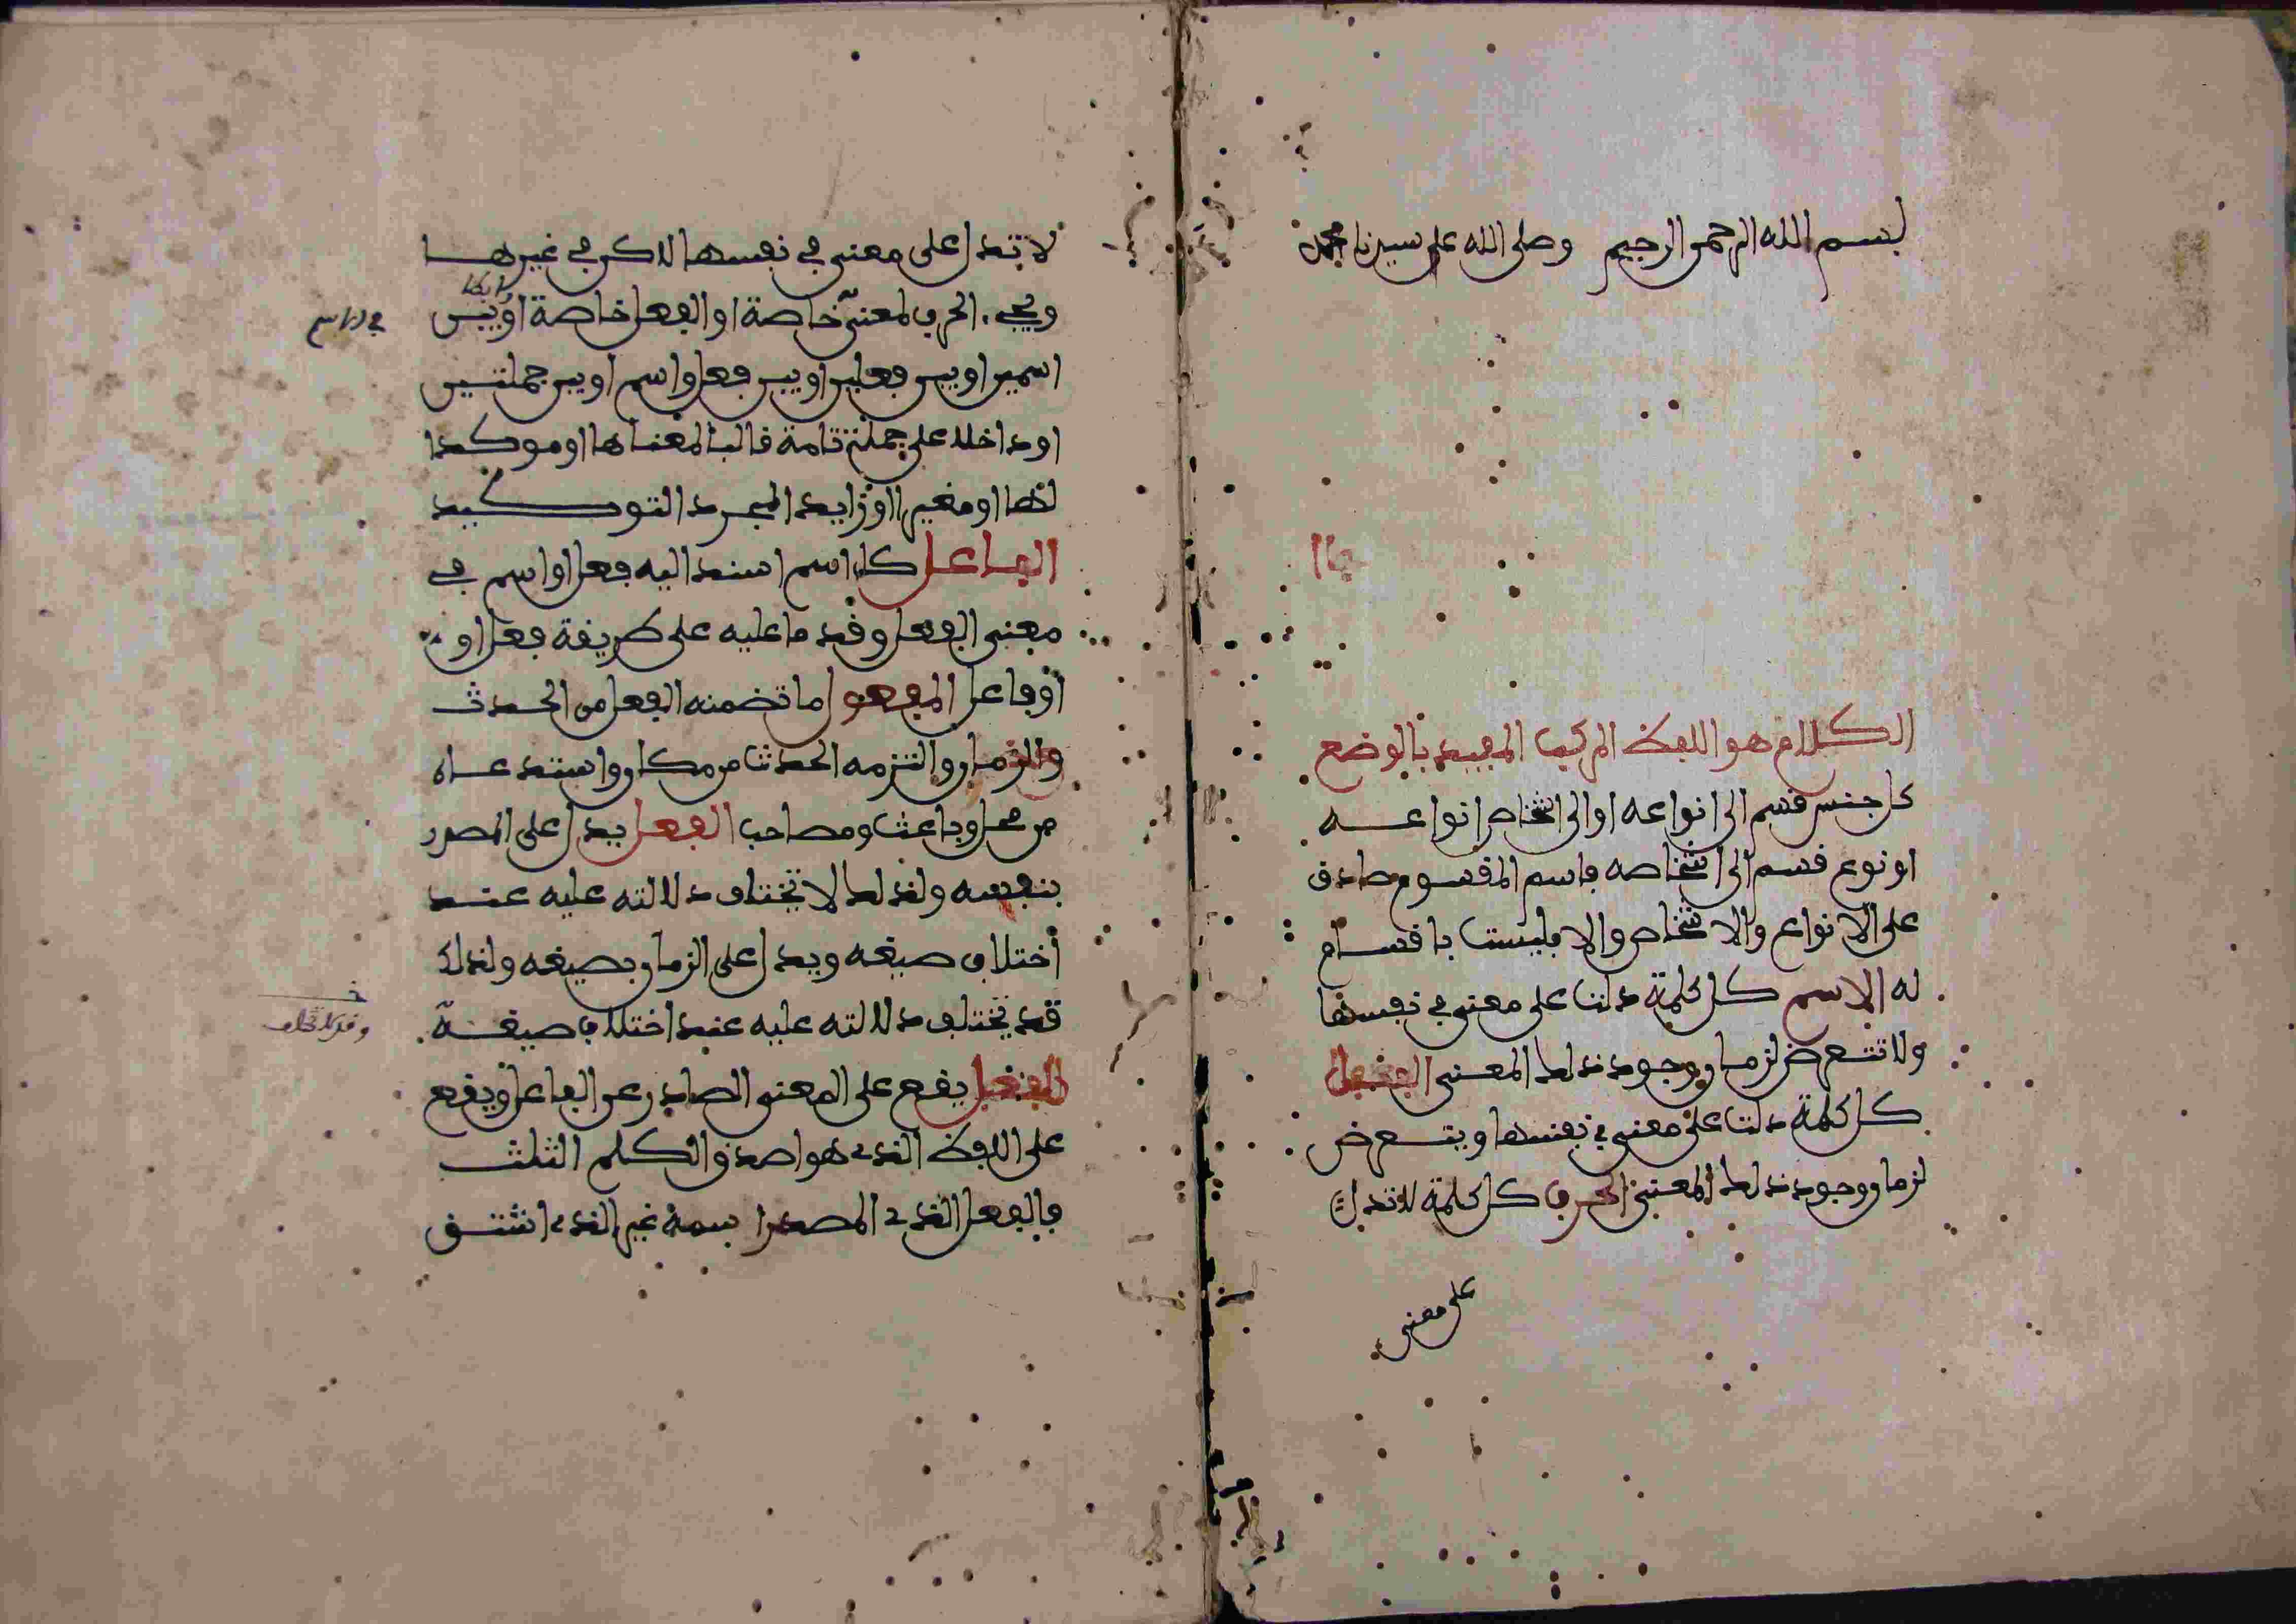 بسم الله الرحمن الرحيم وصلى الله على سيدنا محمد
الكلام هو اللفظ المركب المفيد بالوضع
كل جنس قسم الى انواعه او الى اشخاص انواعه
او نوع قسم الى اشخاصه فاسم المقسوم صادق
على الانواع والاشخاص والا فليست باقسام
له الاسم كل كلمة دلت على معنى في نفسها
ولا تتعرض لزمان وجود ذلك المعنى الفعل
كل كلمة دلت على معنى في نفسها ويتعرض
لزمان وجود ذلك المعنى الحرف كل كلمة لا تدل
على معنى
لا تدل على معنى في نفسها لاكن في غيرها
ويجيء الحرف لمعنى خاصة او الفعل خاصة او بين
اسمين او بين فعلين او بين فعل واسم او بين جملتين
او داخلا على جملة تامة قالبا لمعناها او موكدا
لها او مغيرا او زايدا لمجرد التوكيد
الفاعل كل اسم اسند اليه فعل او اسم في
معنى الفعل وقدم عليه على طريقة فعل او
او فاعل المفعول ما تضمنه الفعل من الحدث
والزمان والتزمه الحدث من مكان واستدعاه
من محل وباعث ومصاحب الفعل يدل على المصدر
بنفسه ولذلك لا تختلف دلالته عليه عند
اختلاف صيغه ويدل على الزمان بصيغه ولذلك
قد يختلف دلالته عليه عند اختلاف صيغه
الفعل يقع على المعنى الصادر عن الفاعل ويقع
على اللفظ الذي هو احد والكلم الثلث
فالفعل الذي المصدر اسمه غير الذي اشتق